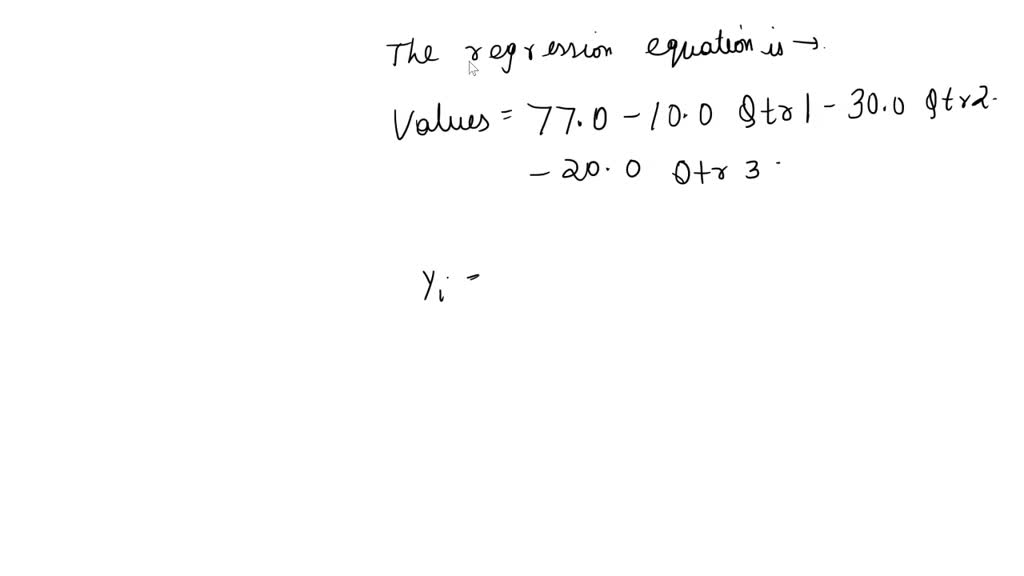 The regression equation is →
Values = 77.0 - 10.0 Qtr 1 - 30.0 Qtr 2
- 20.0 Qtr 3
Yi =